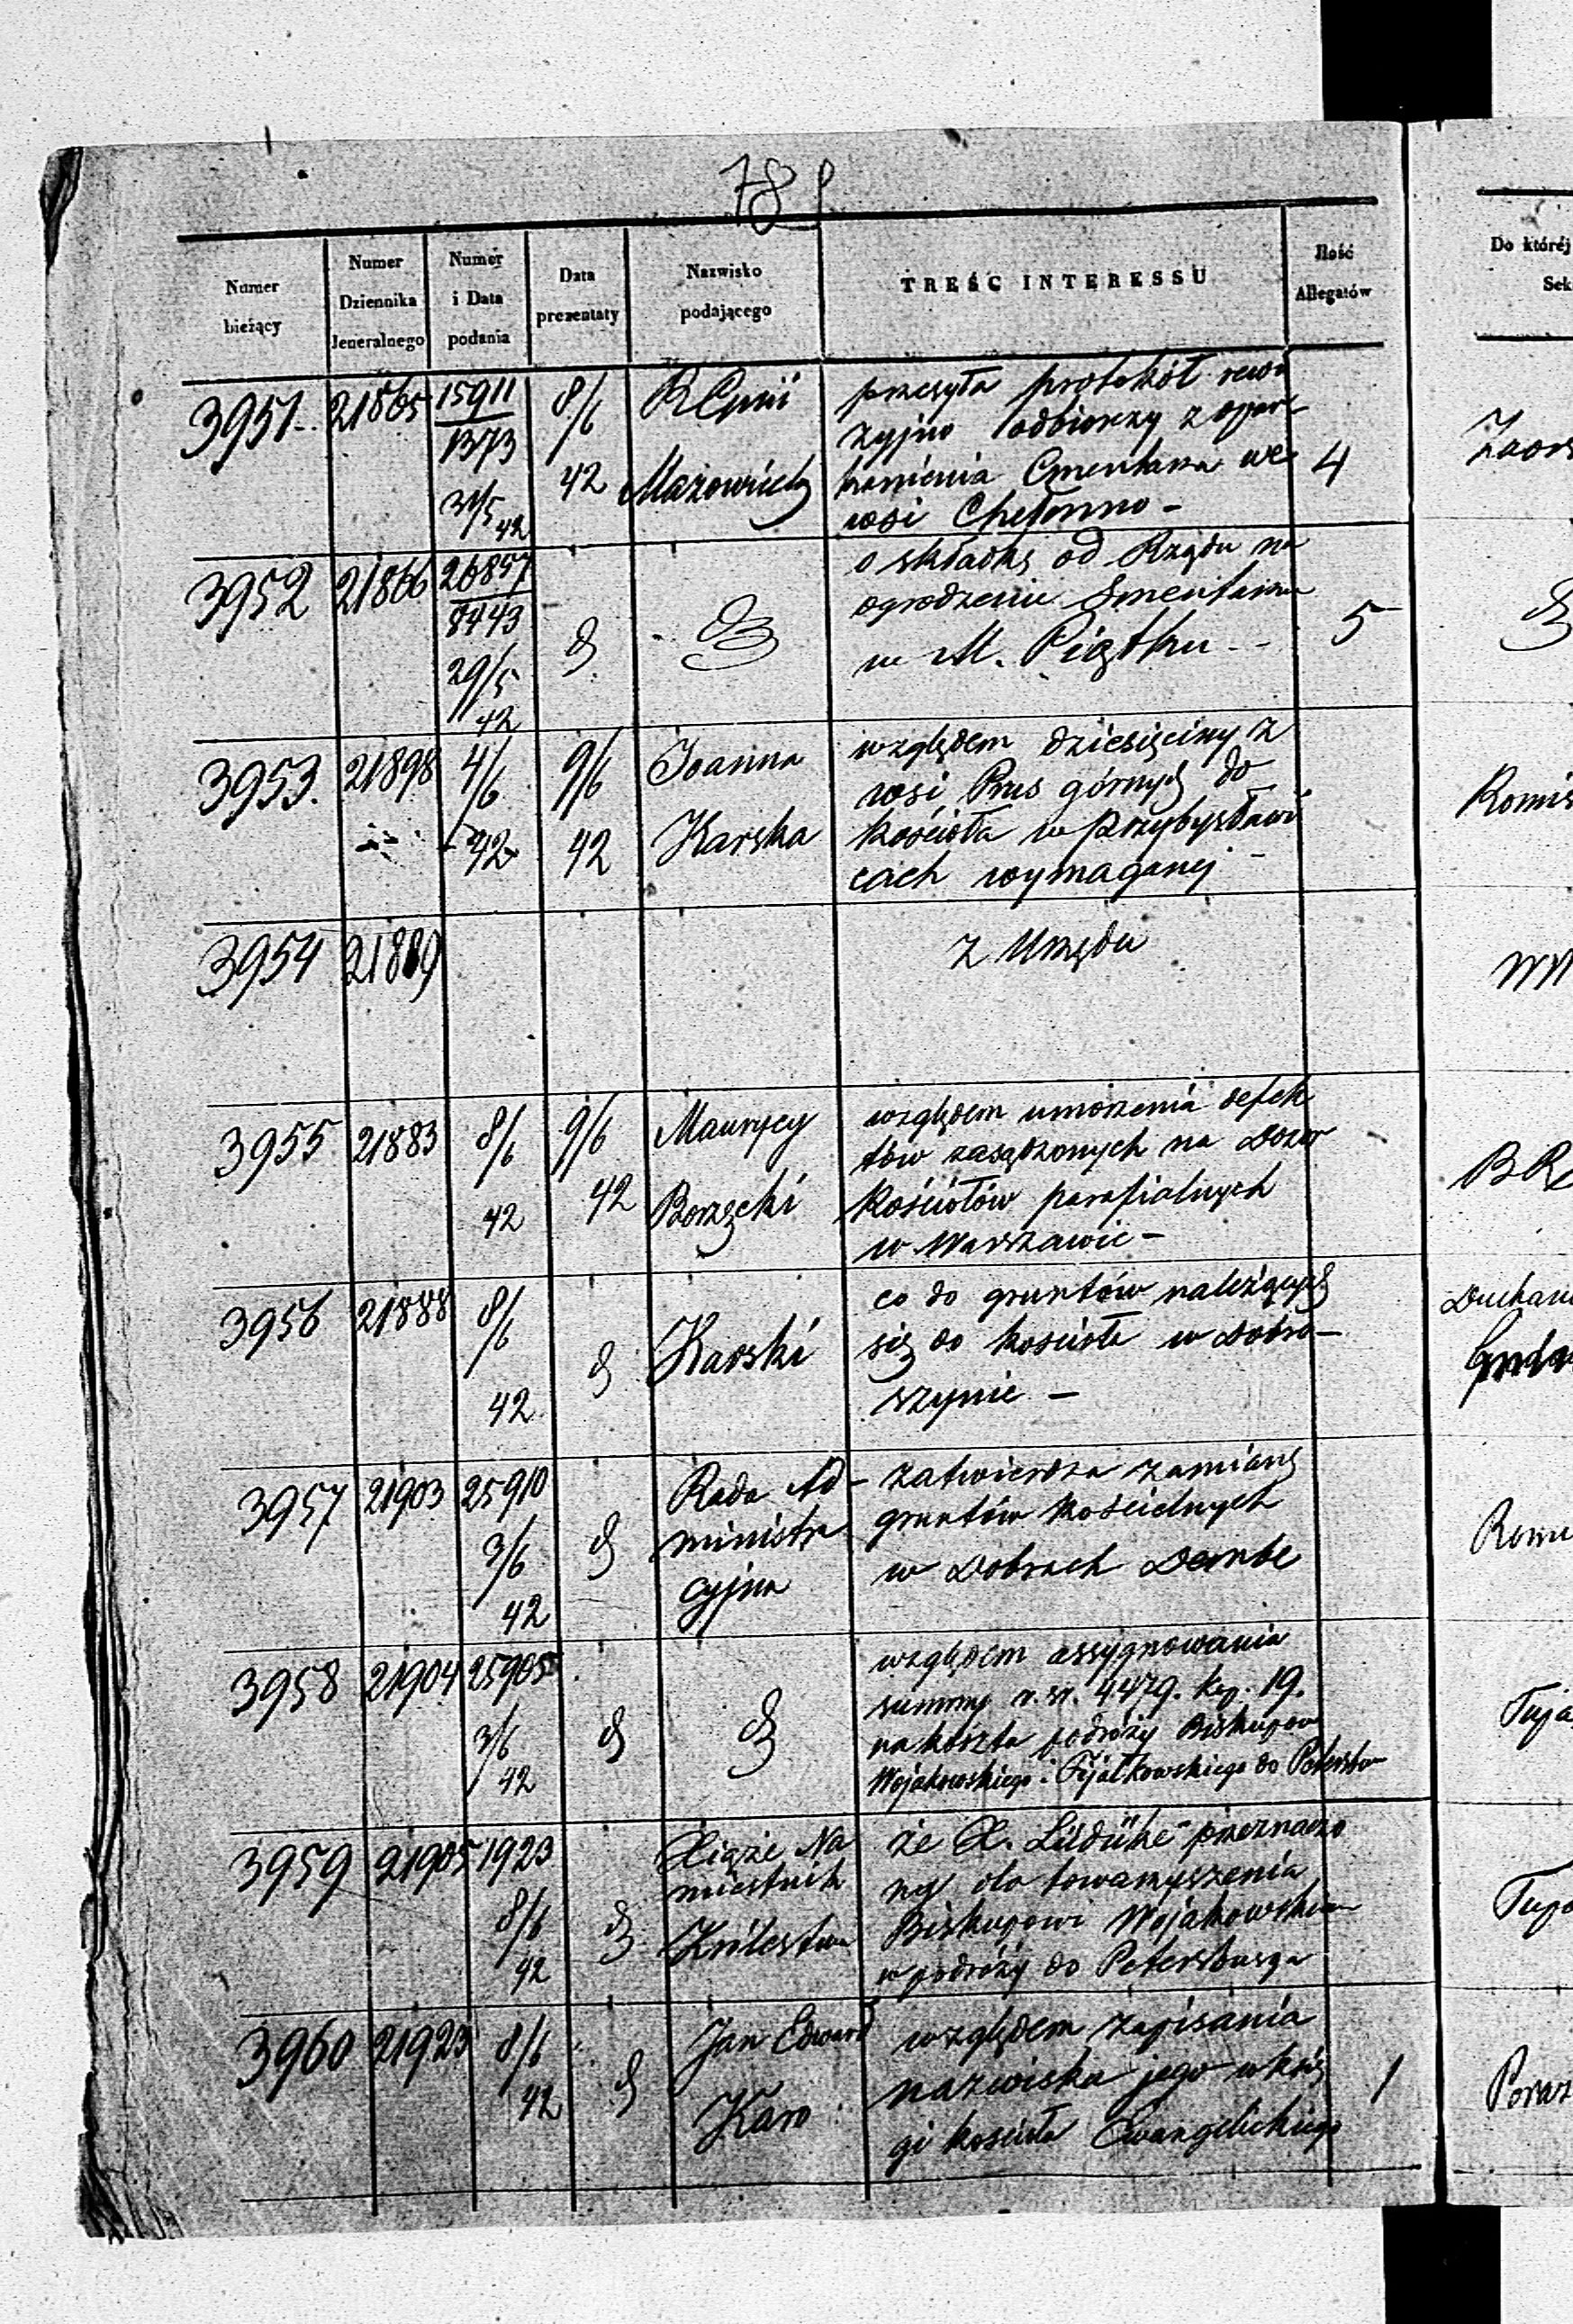 78
Numer bieżący
Numer Dziennika Jeneralnego
Numer i Data podania
Data prezentaty
Nazwisko podającego
TREŚĆ INTERESSU
Ilość Allegatów
Do której
Sek
3951
21865
15911
1373
31/5 42
8/6
42
Mazowiecky
przesyła protokół rewi
zyjno odbiorczy z opar
kanienia Cmentarza we
wsi Chełmno -
4
3952
21866
26857
8443
29/5
42
o składkę od Rządu na
ogrodzenie Smentarza
w M. Piątku -
5
3953.
21898
4/6
42
9/6
42
Joanna
Karska
względem dziesięciny z
wsi Prus górnych do
kościoła w Przybysławi
cach wymaganej -
3954
21889
z Urzędu
3955
21883
8/6
42
9/6
42
Maurycy
Borzęcki
względem umorzenia defek
tów zasądzonych na Dozor
kościołów parafialnych
w Warszawie -
BR
3956
21888
8/6
42
Karski
co do gruntów należących
się do kościoła w Dobro-
szynie -
3957
21903
25910
3/6
42
Rada Ad-
ministra
cyjna
zatwierdza zamianę
gruntów kościelnych
w Dobrach Dembe
3958
21904
25905
3/6
42
względem assygnowania
summy r. sr. 4479. kop. 19.
na koszta podróży Biskupow
Wojakowskiego i Fijałkowskiego do Petersbu
3959
21905
1923
8/6
42
Xiąże Na
miestnik
Królestwa
że X. przeznaczo
ny do towarzyszenia
Biskupowi Wojakowskiemu
w podróży do Petersburga
3960
21923
8/6
42
Jan Edward
Karo
względem zapisania
nazwiska jego w księ
gi kościoła Ewangelickiego
1